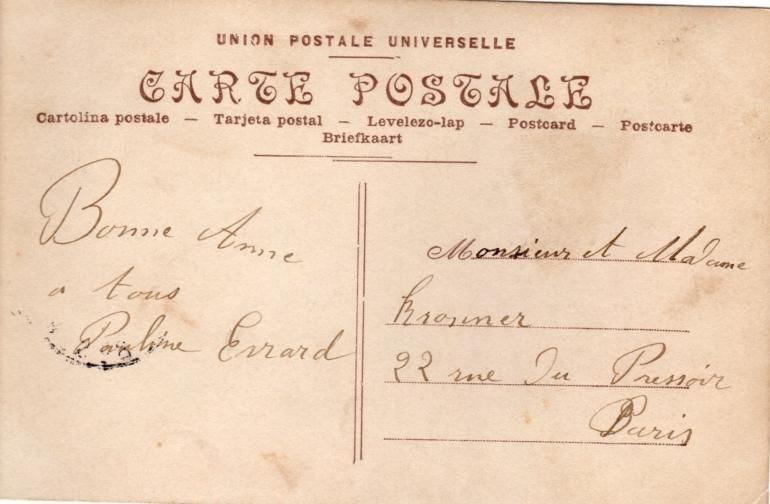 UNION POSTALE UNIVERSELLE
CARTE POSTALE
Cartolina postale — Tarjeta postal — Levelezo-lap — Postcard — Postcarte
Briefkaart
Bonne Anne
a tous
Pauline Evrard
Monsieur et Madame
Kronner
22 rue Du Pressoir
Paris